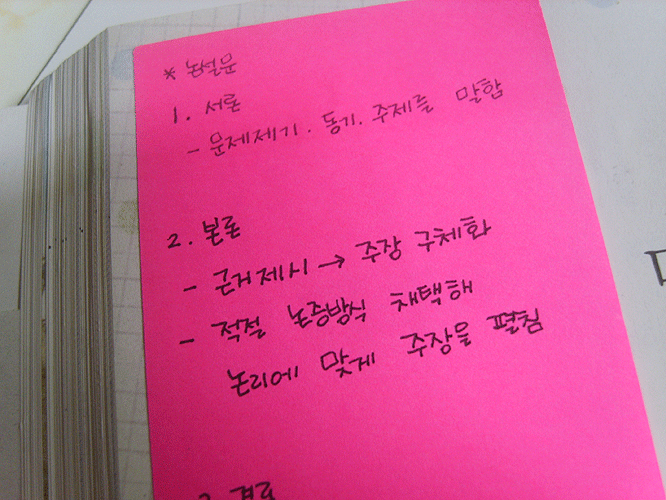 * 논설문
1. 서론
- 문제제기. 동기. 주제를 말함
2. 본론
- 근거제시 → 주장 구체화
- 적절 논증방식 채택해
논리에 맞게 주장을 펼침
3. 결론